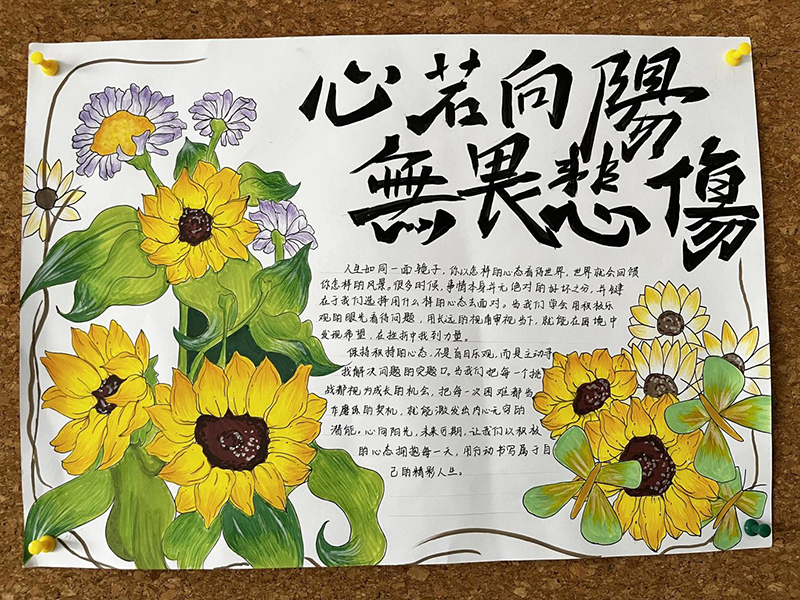 心若向陽
無畏悲傷
人生如同一面镜子，你以怎样的心态看待世界，世界就会回馈
你怎样的风景。很多时候，事情本身并无绝对的好坏之分，关键
在于我们选择用什么样的心态去面对。当我们学会用积极乐
观的眼光看待问题，用长远的视角审视当下，就能在困境中
发现希望，在挫折中找到力量。
保持积极的心态，不是盲目乐观，而是主动寻
找解决问题的突破口。当我们把每一个挑
战都视为成长的机会，把每一次困难都当
作磨练的契机，就能激发出内心无穷的
潜能。心向阳光，未来可期，让我们以积极
的心态拥抱每一天，用行动书写属于自
己的精彩人生。